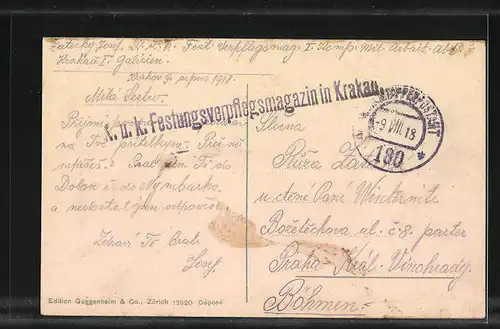 Zatecky Josef, K. u. k. Fest. Verpflegsmag. I. Komp. Mil. Arbeit. Abt.
Krakau I. Galizien.
Krakov 9. srpna 1918.
Milá Sestro.
k. u. k. Festungsverpflegsmagazin in Krakau
9 VIII. 18
180
Přijmi
na Tvé přítelkyne. Proč
nepíšeš? Psal jsem Ti do
Dolan i do Nymburka
a nedostal jsem odpověď.
Zdraví Tě bratr
Josef.
Slečna
Růža
u ctěné Paní Winternitz
Božetěchova ul. č. 8. parter
Praha Král. Vinohrady
Böhmen.
Edition Guggenheim & Co., Zürich 13920 Déposé